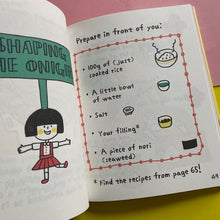 SHAPING
THE ONIGIRI
Prepare in front of you:
• 100g of (just)
cooked rice
• A little bowl
of water
• Salt
• Your filling*
• A piece of nori
(seaweed)
* Find the recipes from page 65!
49